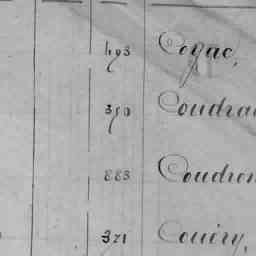 493 Cogac,
390 Coudra
883 Coudron
371 Couéry,